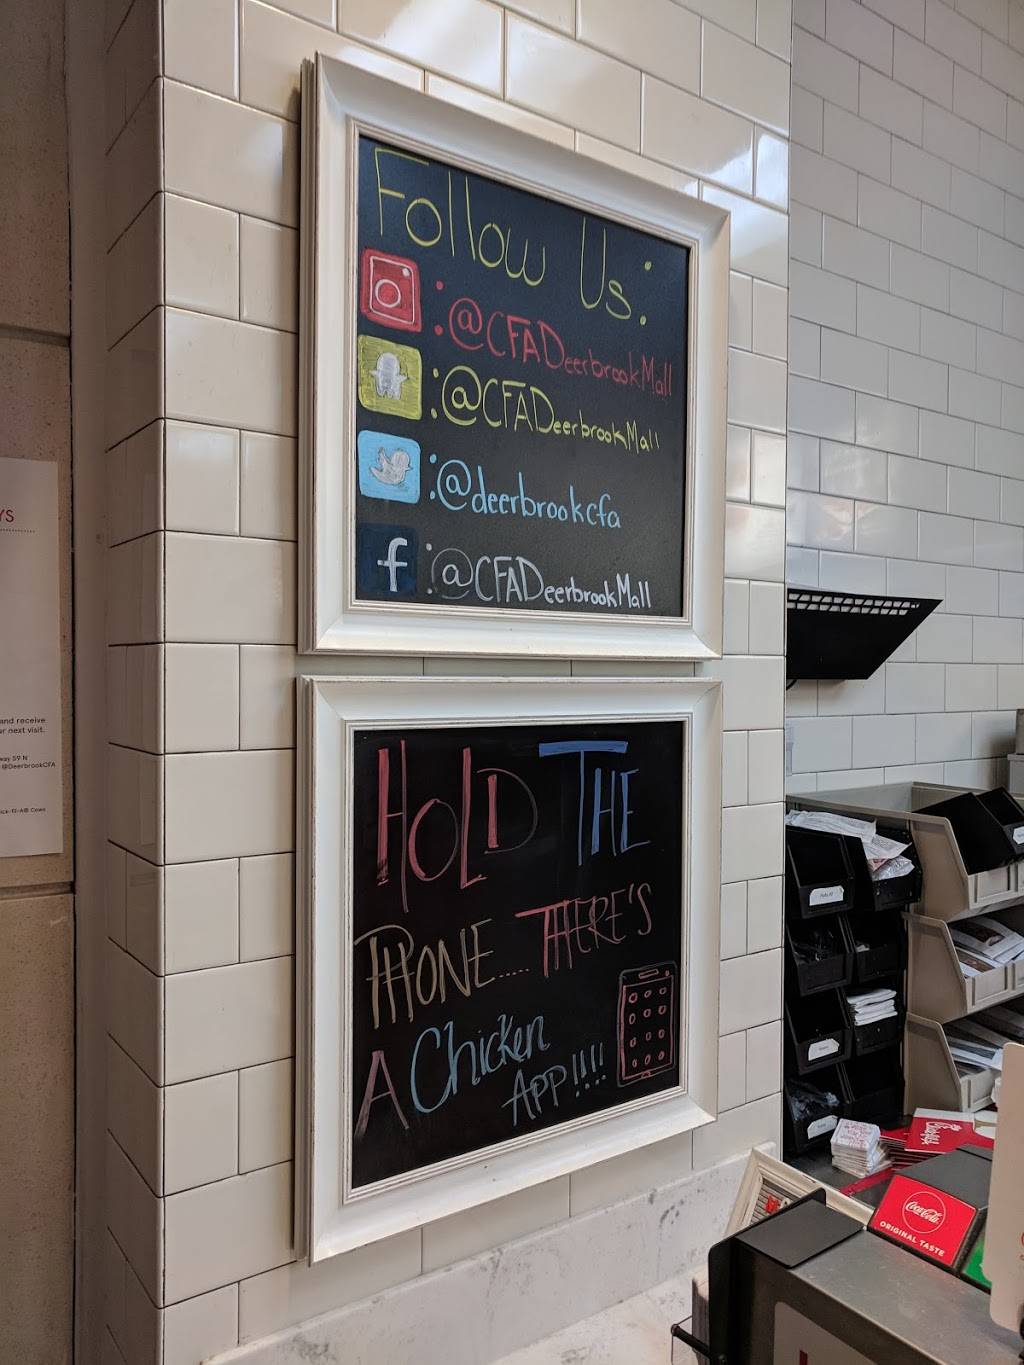 Follow Us:
:@CFADeerbrookMall
:@CFADeerbrookMall
:@deerbrookcfa
f :@CFADeerbrookMall
HOLD THE
PHONE...... THERE'S
A Chicken
APP!!!!
YS
and receive
ur next visit.
way 59 N
@DeerbrookCFA
ick-fil-A® Cows
Coca-Cola
ORIGINAL TASTE